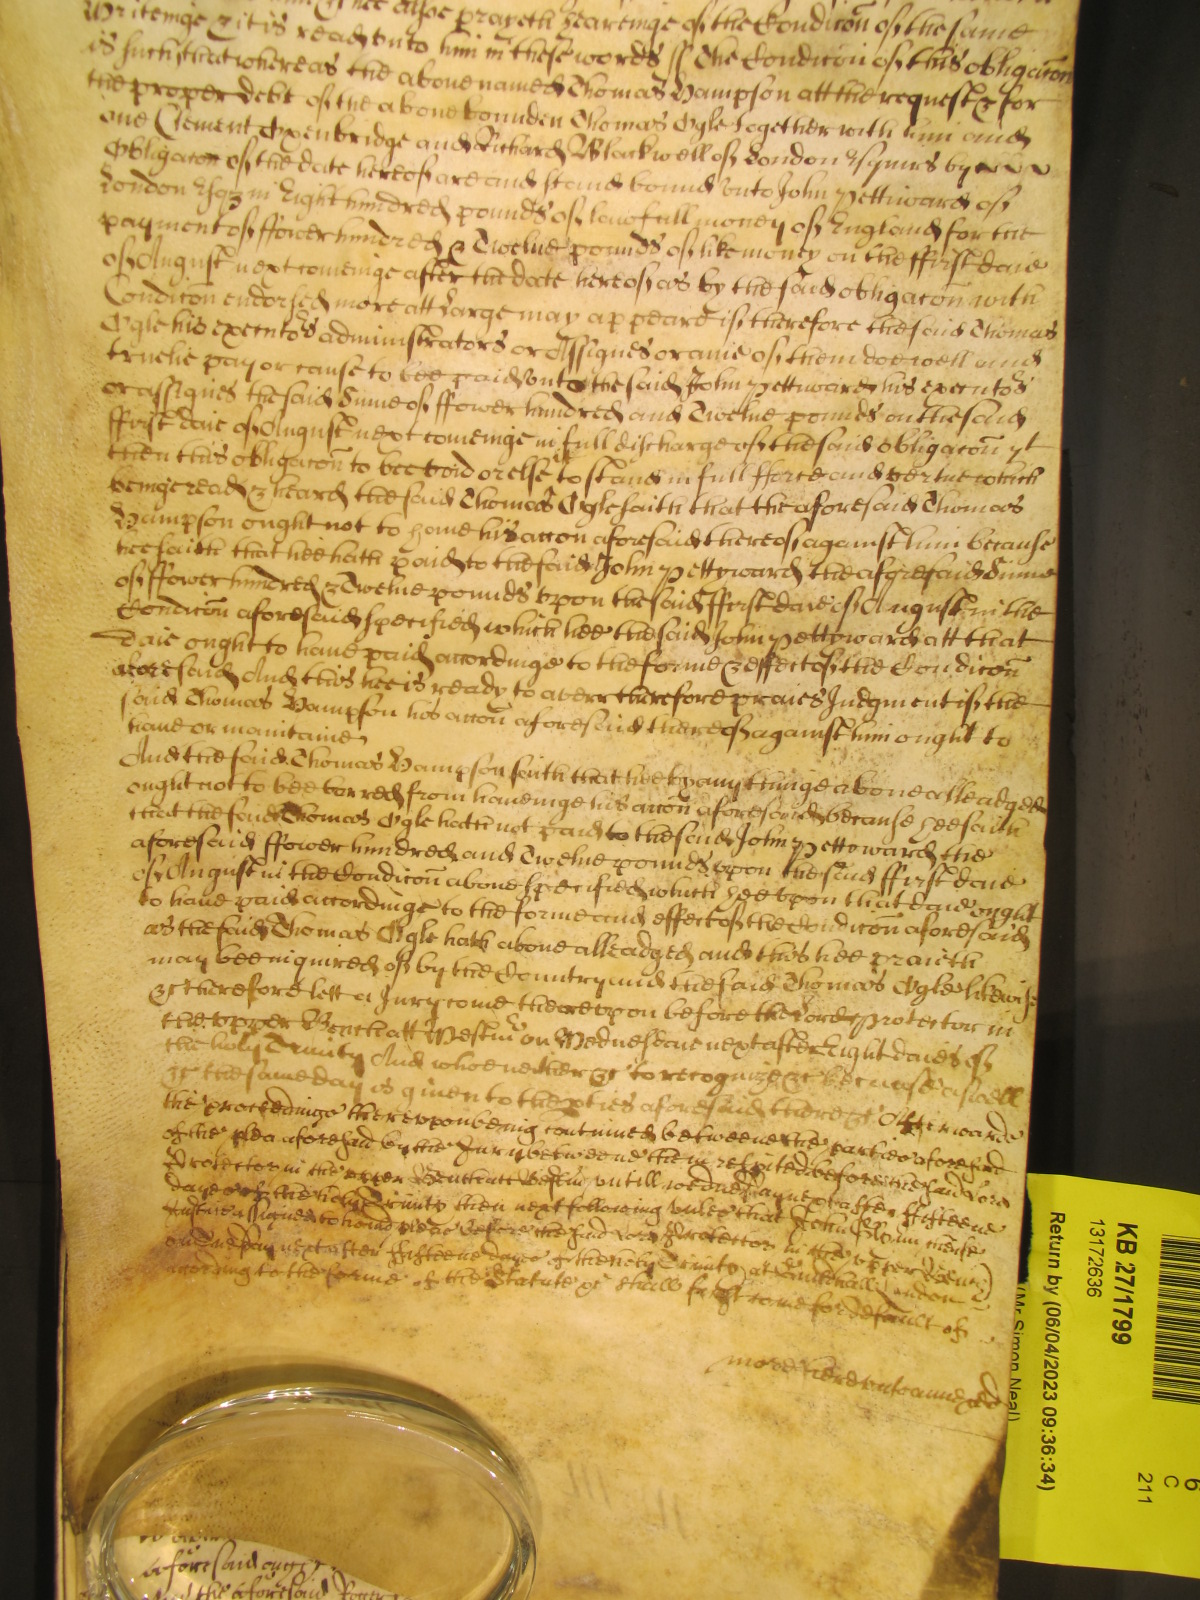 hee alsoe prayeth heareinge of the Condicōn of the same
Writeinge & it is read unto him in these words ss The Condicōn of this obligacōn
is such that whereas the above named Thomas Hampson att the request & for
the proper debt of the above bounden Thomas Ogle together with him and
one Clement Oxenbridge and Richard Blackwell of London Esquires by
Obligacōn of the date hereof are and stand bound unto John Pettiward of
London Esqr in Eight hundred pounds of lawfull money of England for the
payment of ffower hundred & Twelve pounds of like money on the ffirst daie
of August next comeinge after the date hereof as by the said obligacōn with
Condicōn endorsed more att Large may appeare if therefore the said Thomas
Ogle his executors administrators or Assignes or anie of them doe well and
truelie pay or cause to bee paid unto the said John Pettiward his executors
or assignes the said Sume of ffower hundred and Twelve pounds on the said
ffirst daie of August next comeinge in full discharge of the said obligacōn yt
then this obligacōn to bee void or else to stand in full fforce and vertue which
beinge read & heard the said Thomas Ogle saith that the aforesaid Thomas
Hampson ought not to have his accōn aforesaid thereof against him because
hee saith that hee hath paid to the said John Pettyward the aforesaid Summe
of ffower hundred & Twelve pounds upon the said ffirst daie of August in the
Condicōn aforesaid specified which hee the said John Pettyward att that
daie ought to have paid accordinge to the forme & effect of the Condicōn
aforesaid And this hee is ready to averr therefore praies Judgment if the
said Thomas Hampson his accōn aforesaid thereof against him ought to
have or maintaine
And the said Thomas Hampson saith that hee by any thinge above alleadged
ought not to bee barred from haveinge his accōn aforesaid because hee saith
that the said Thomas Ogle hath not paid to the said John Pettyward the
aforesaid ffower hundred and Twelve pounds upon the said ffirst daie
of August in the Condicōn above specified which hee upon that daie ought
to have paid accordinge to the forme and effect of the Condicōn aforesaid
as the said Thomas Ogle hath above alleadged and this hee praieth
may bee inquired of by the Country and the said Thomas Ogle likewise
&c therefore lett a Jury come thereupon before the Lord Protector in
the upper Bench att Westmr on Wednesdaie next after Eight daies of
the holy Trinity And who neither &c to recognize &c because aswell
&c the same day is given to the pties aforesaid there &c Afterwards
the proceedings thereupon being continued betweene the parties aforesaid
of the plea aforesaid by the Jury betweene them respited before the said Lord
Protector in the upper Bench att Westm untill wednesday next after ffifteene
dayes of the holy Trinity then next following unles that
Justice assigned to hould pleas before the said Lord Protector in the upper Bench
on next after ffifteene dayes of the holy Trinity at Guildhall London
according to the forme of the Statute &c shall first come for default of
more heere unto annexed
to
aforesaid
And the aforesaid
KB 27/1799
13172636
Return by (06/04/2023 09:36:34)
(Mr Simon Neal)
6
C
211